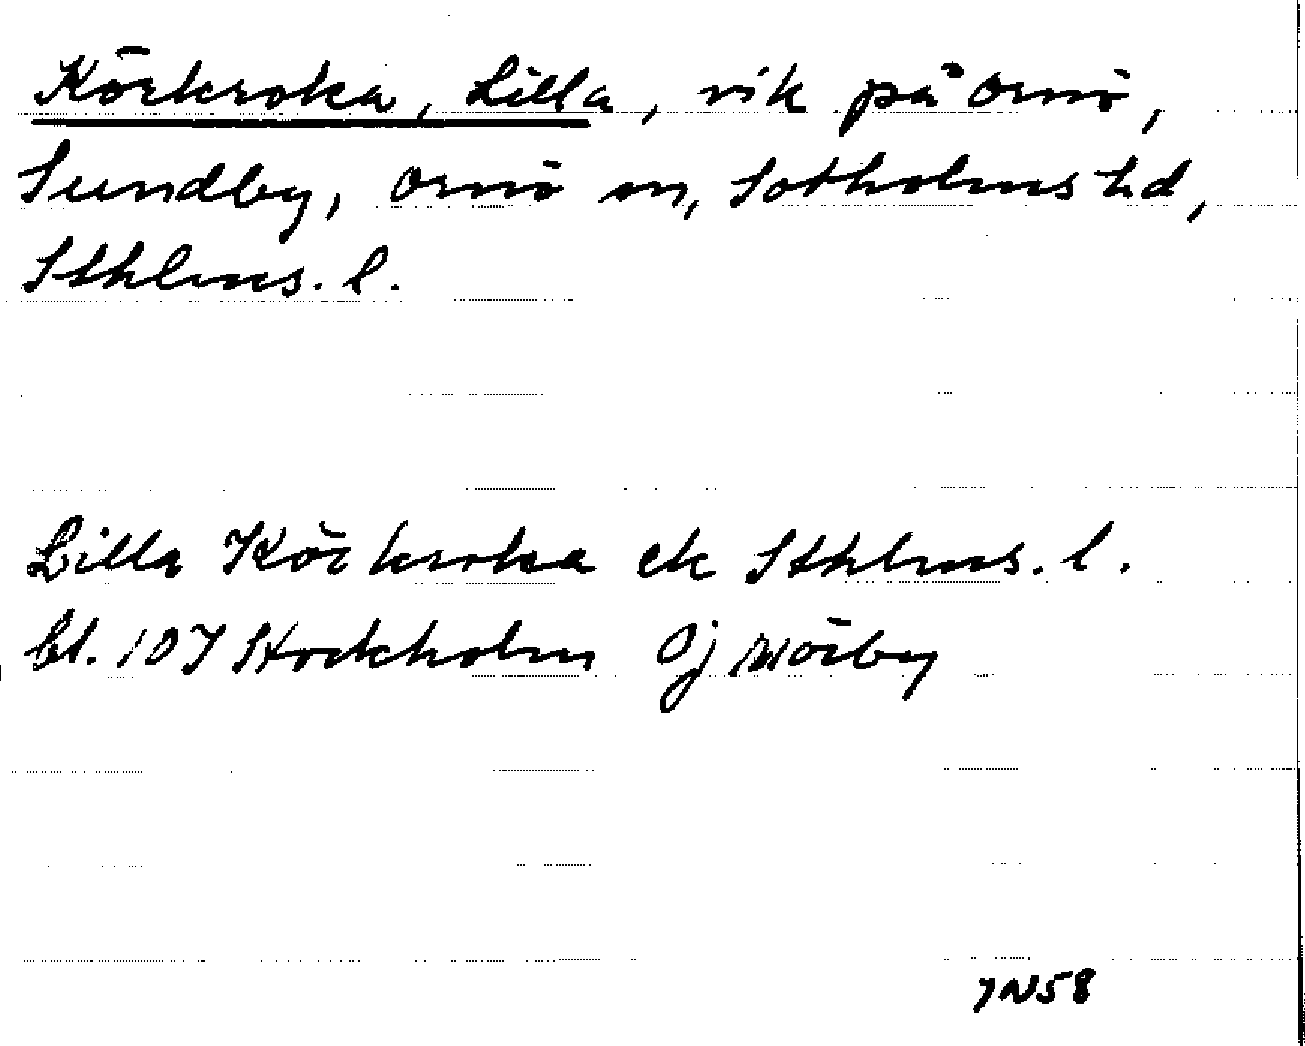 Körkroka, Lilla, vik på Ornö,
Sundby, Ornö sn, Sotholms hd,
Sthlms. l.
Lilla Körkroka ek Sthlms. l.
bl. 107 Stockholm Oj Mörby
7N58